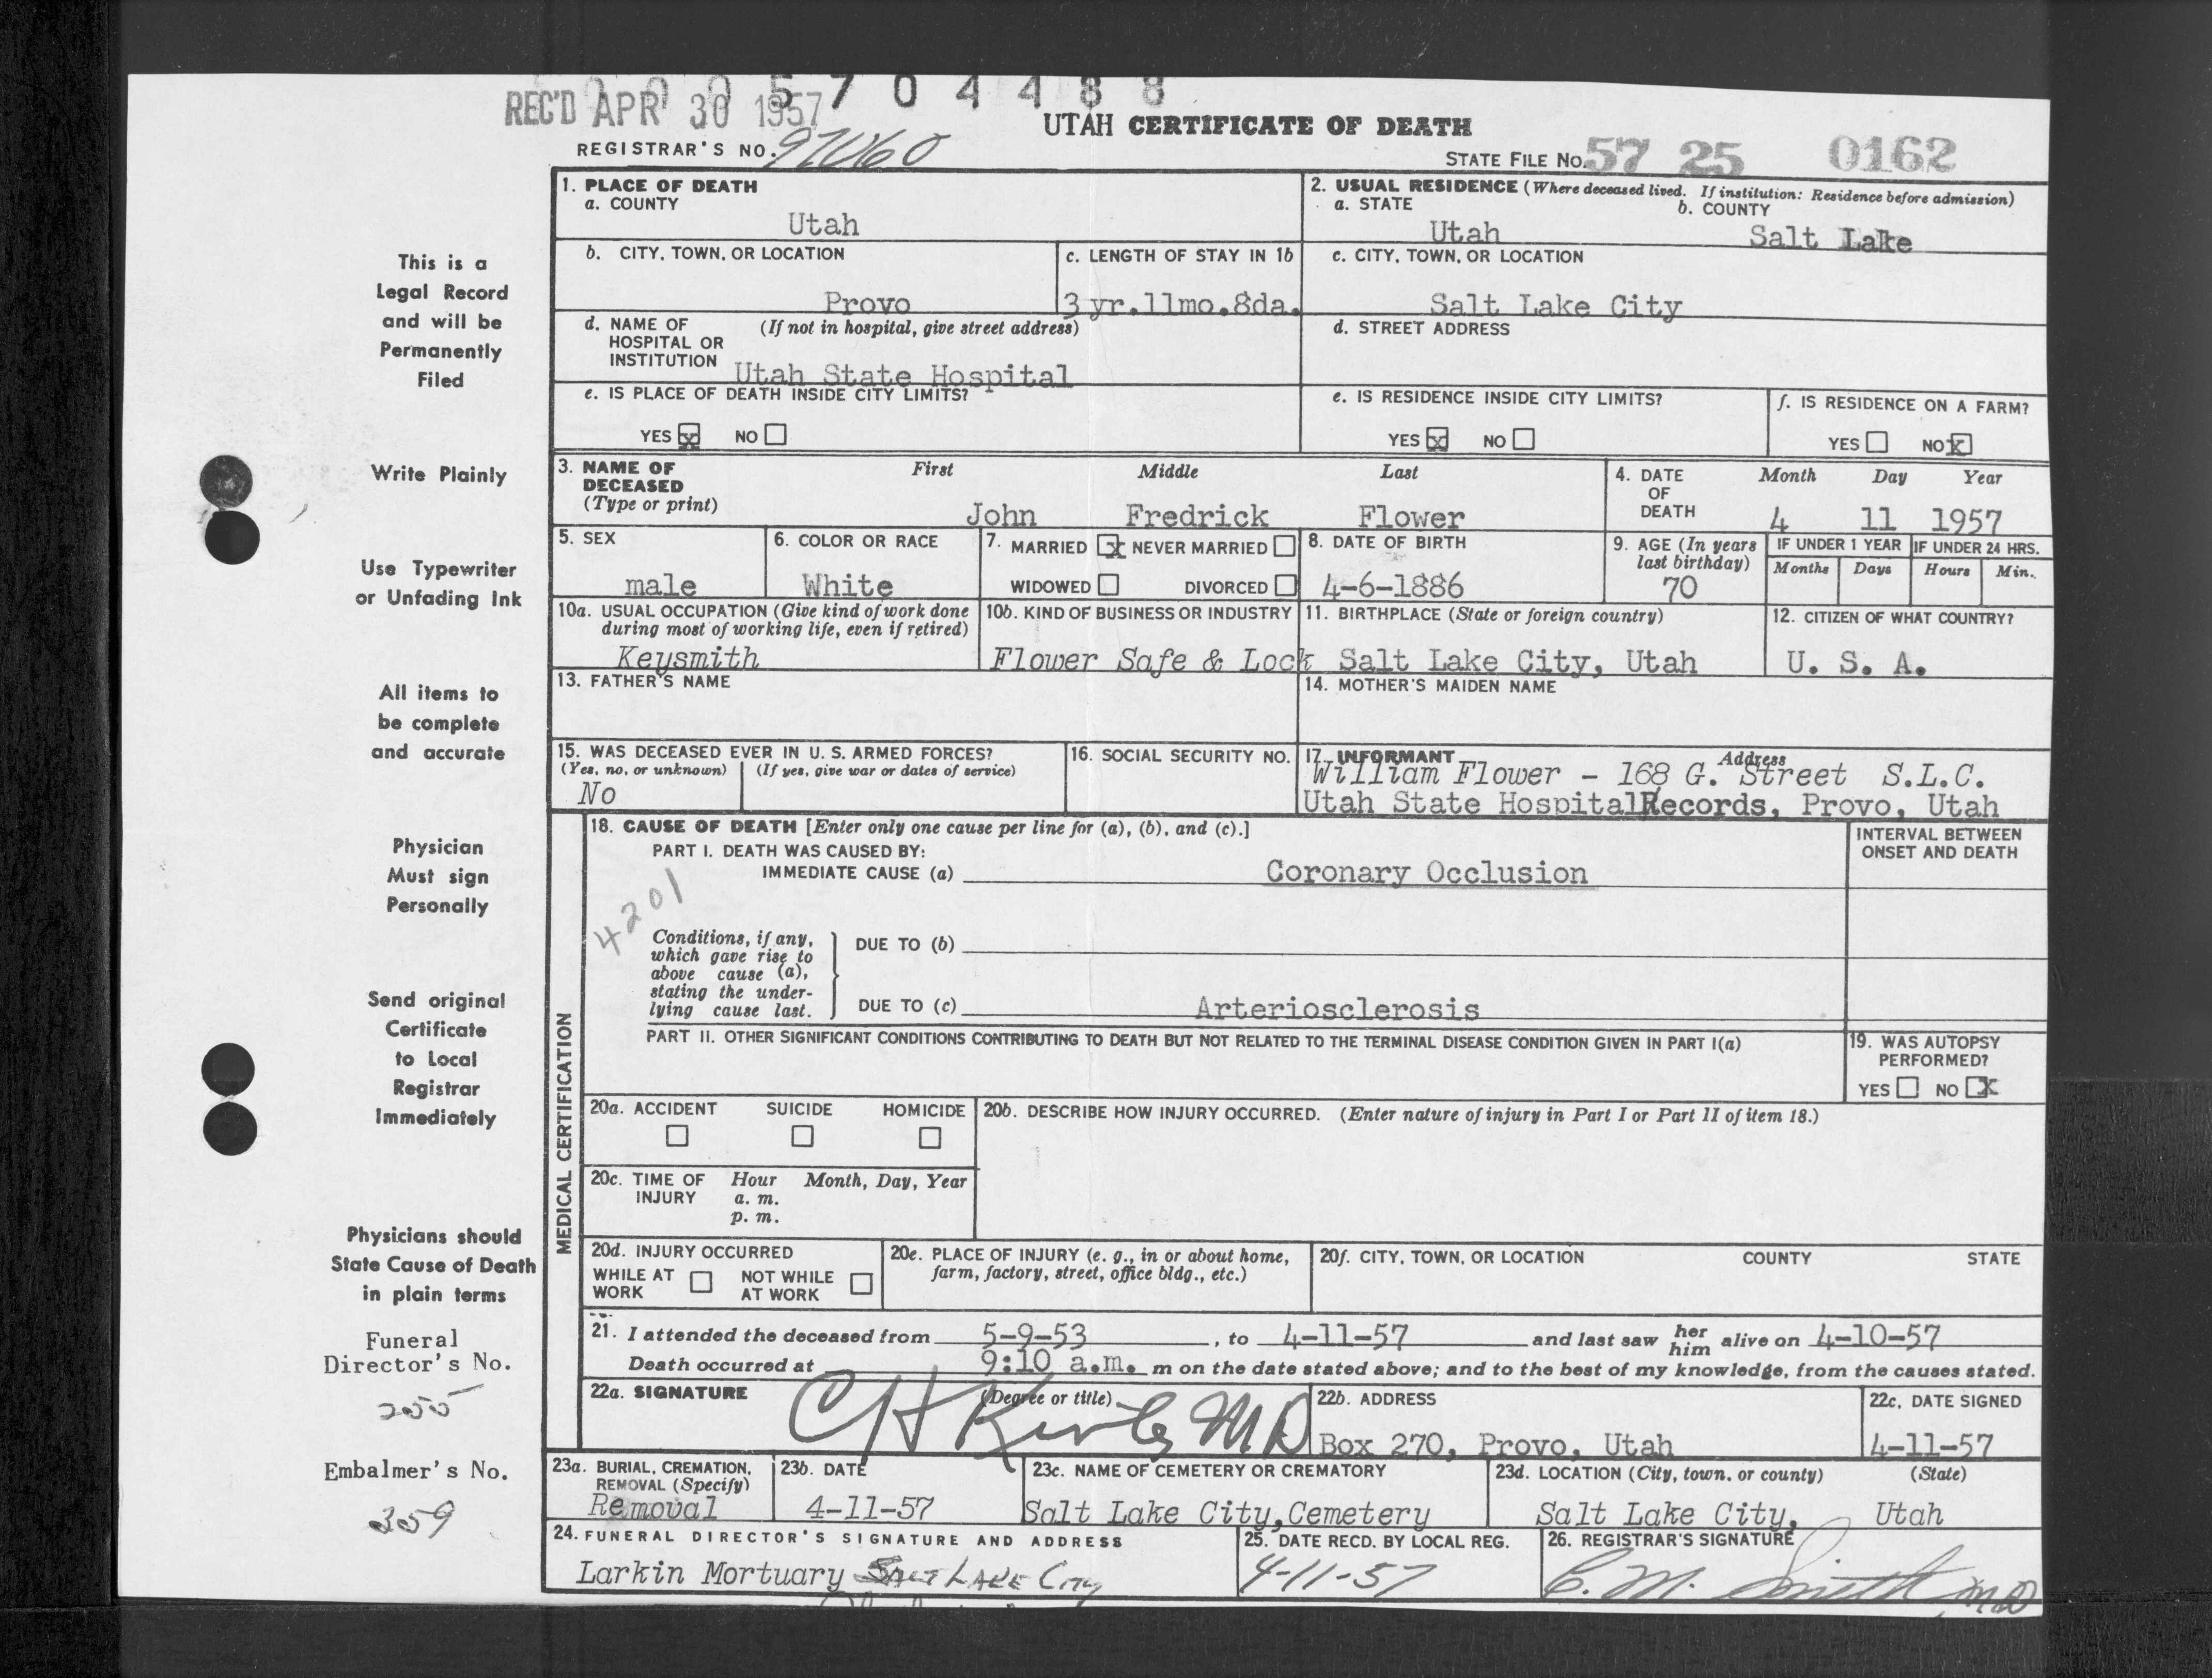 0 0 0 5 7 0 4 4 8 8
REC'D APR 30 1957
UTAH CERTIFICATE OF DEATH
REGISTRAR'S NO.
STATE FILE No. 57 25 0162
1. PLACE OF DEATH
a. COUNTY
Utah
2. USUAL RESIDENCE (Where deceased lived. If institution: Residence before admission)
a. STATE b. COUNTY
Utah Salt Lake
b. CITY, TOWN, OR LOCATION
Provo
c. LENGTH OF STAY IN 1b
3 yr.11mo.8da.
c. CITY, TOWN, OR LOCATION
Salt Lake City
d. NAME OF (If not in hospital, give street address)
HOSPITAL OR
INSTITUTION Utah State Hospital
d. STREET ADDRESS
e. IS PLACE OF DEATH INSIDE CITY LIMITS?
YES x NO
e. IS RESIDENCE INSIDE CITY LIMITS?
YES x NO
f. IS RESIDENCE ON A FARM?
YES NO x
3. NAME OF DECEASED
(Type or print)
First Middle Last
John Fredrick Flower
4. DATE OF DEATH
Month Day Year
4 11 1957
5. SEX
male
6. COLOR OR RACE
White
7. MARRIED x NEVER MARRIED
WIDOWED DIVORCED
8. DATE OF BIRTH
4-6-1886
9. AGE (In years
last birthday)
70
IF UNDER 1 YEAR
Months Days
IF UNDER 24 HRS.
Hours Min.
10a. USUAL OCCUPATION (Give kind of work done
during most of working life, even if retired)
Keysmith
10b. KIND OF BUSINESS OR INDUSTRY
Flower Safe & Lock
11. BIRTHPLACE (State or foreign country)
Salt Lake City, Utah
12. CITIZEN OF WHAT COUNTRY?
U. S. A.
13. FATHER'S NAME
14. MOTHER'S MAIDEN NAME
15. WAS DECEASED EVER IN U. S. ARMED FORCES?
(Yes, no, or unknown) (If yes, give war or dates of service)
No
16. SOCIAL SECURITY NO.
17. INFORMANT Address
William Flower - 168 G. Street S.L.C.
Utah State Hospital Records, Provo, Utah
MEDICAL CERTIFICATION
18. CAUSE OF DEATH [Enter only one cause per line for (a), (b), and (c).]
INTERVAL BETWEEN
ONSET AND DEATH
PART I. DEATH WAS CAUSED BY:
IMMEDIATE CAUSE (a) Coronary Occlusion
4201
Conditions, if any,
which gave rise to
above cause (a),
stating the under-
lying cause last.
DUE TO (b)
DUE TO (c) Arteriosclerosis
PART II. OTHER SIGNIFICANT CONDITIONS CONTRIBUTING TO DEATH BUT NOT RELATED TO THE TERMINAL DISEASE CONDITION GIVEN IN PART I(a)
19. WAS AUTOPSY
PERFORMED?
YES NO X
20a. ACCIDENT SUICIDE HOMICIDE
20b. DESCRIBE HOW INJURY OCCURRED. (Enter nature of injury in Part I or Part II of item 18.)
20c. TIME OF Hour Month, Day, Year
INJURY a. m.
p. m.
20d. INJURY OCCURRED
WHILE AT WORK NOT WHILE AT WORK
20e. PLACE OF INJURY (e. g., in or about home,
farm, factory, street, office bldg., etc.)
20f. CITY, TOWN, OR LOCATION COUNTY STATE
21. I attended the deceased from 5-9-53, to 4-11-57 and last saw her him alive on 4-10-57
Death occurred at 9:10 a.m. m on the date stated above; and to the best of my knowledge, from the causes stated.
22a. SIGNATURE (Degree or title)
MD
22b. ADDRESS
Box 270, Provo, Utah
22c. DATE SIGNED
4-11-57
23a. BURIAL, CREMATION,
REMOVAL (Specify)
Removal
23b. DATE
4-11-57
23c. NAME OF CEMETERY OR CREMATORY
Salt Lake City,Cemetery
23d. LOCATION (City, town, or county) (State)
Salt Lake City, Utah
24. FUNERAL DIRECTOR'S SIGNATURE AND ADDRESS
Larkin Mortuary SALT LAKE CITY
25. DATE RECD. BY LOCAL REG.
4-11-57
26. REGISTRAR'S SIGNATURE
C. M. Smith MD
This is a
Legal Record
and will be
Permanently
Filed
Write Plainly
Use Typewriter
or Unfading Ink
All items to
be complete
and accurate
Physician
Must sign
Personally
Send original
Certificate
to Local
Registrar
Immediately
Physicians should
State Cause of Death
in plain terms
Funeral
Director's No.
255
Embalmer's No.
359